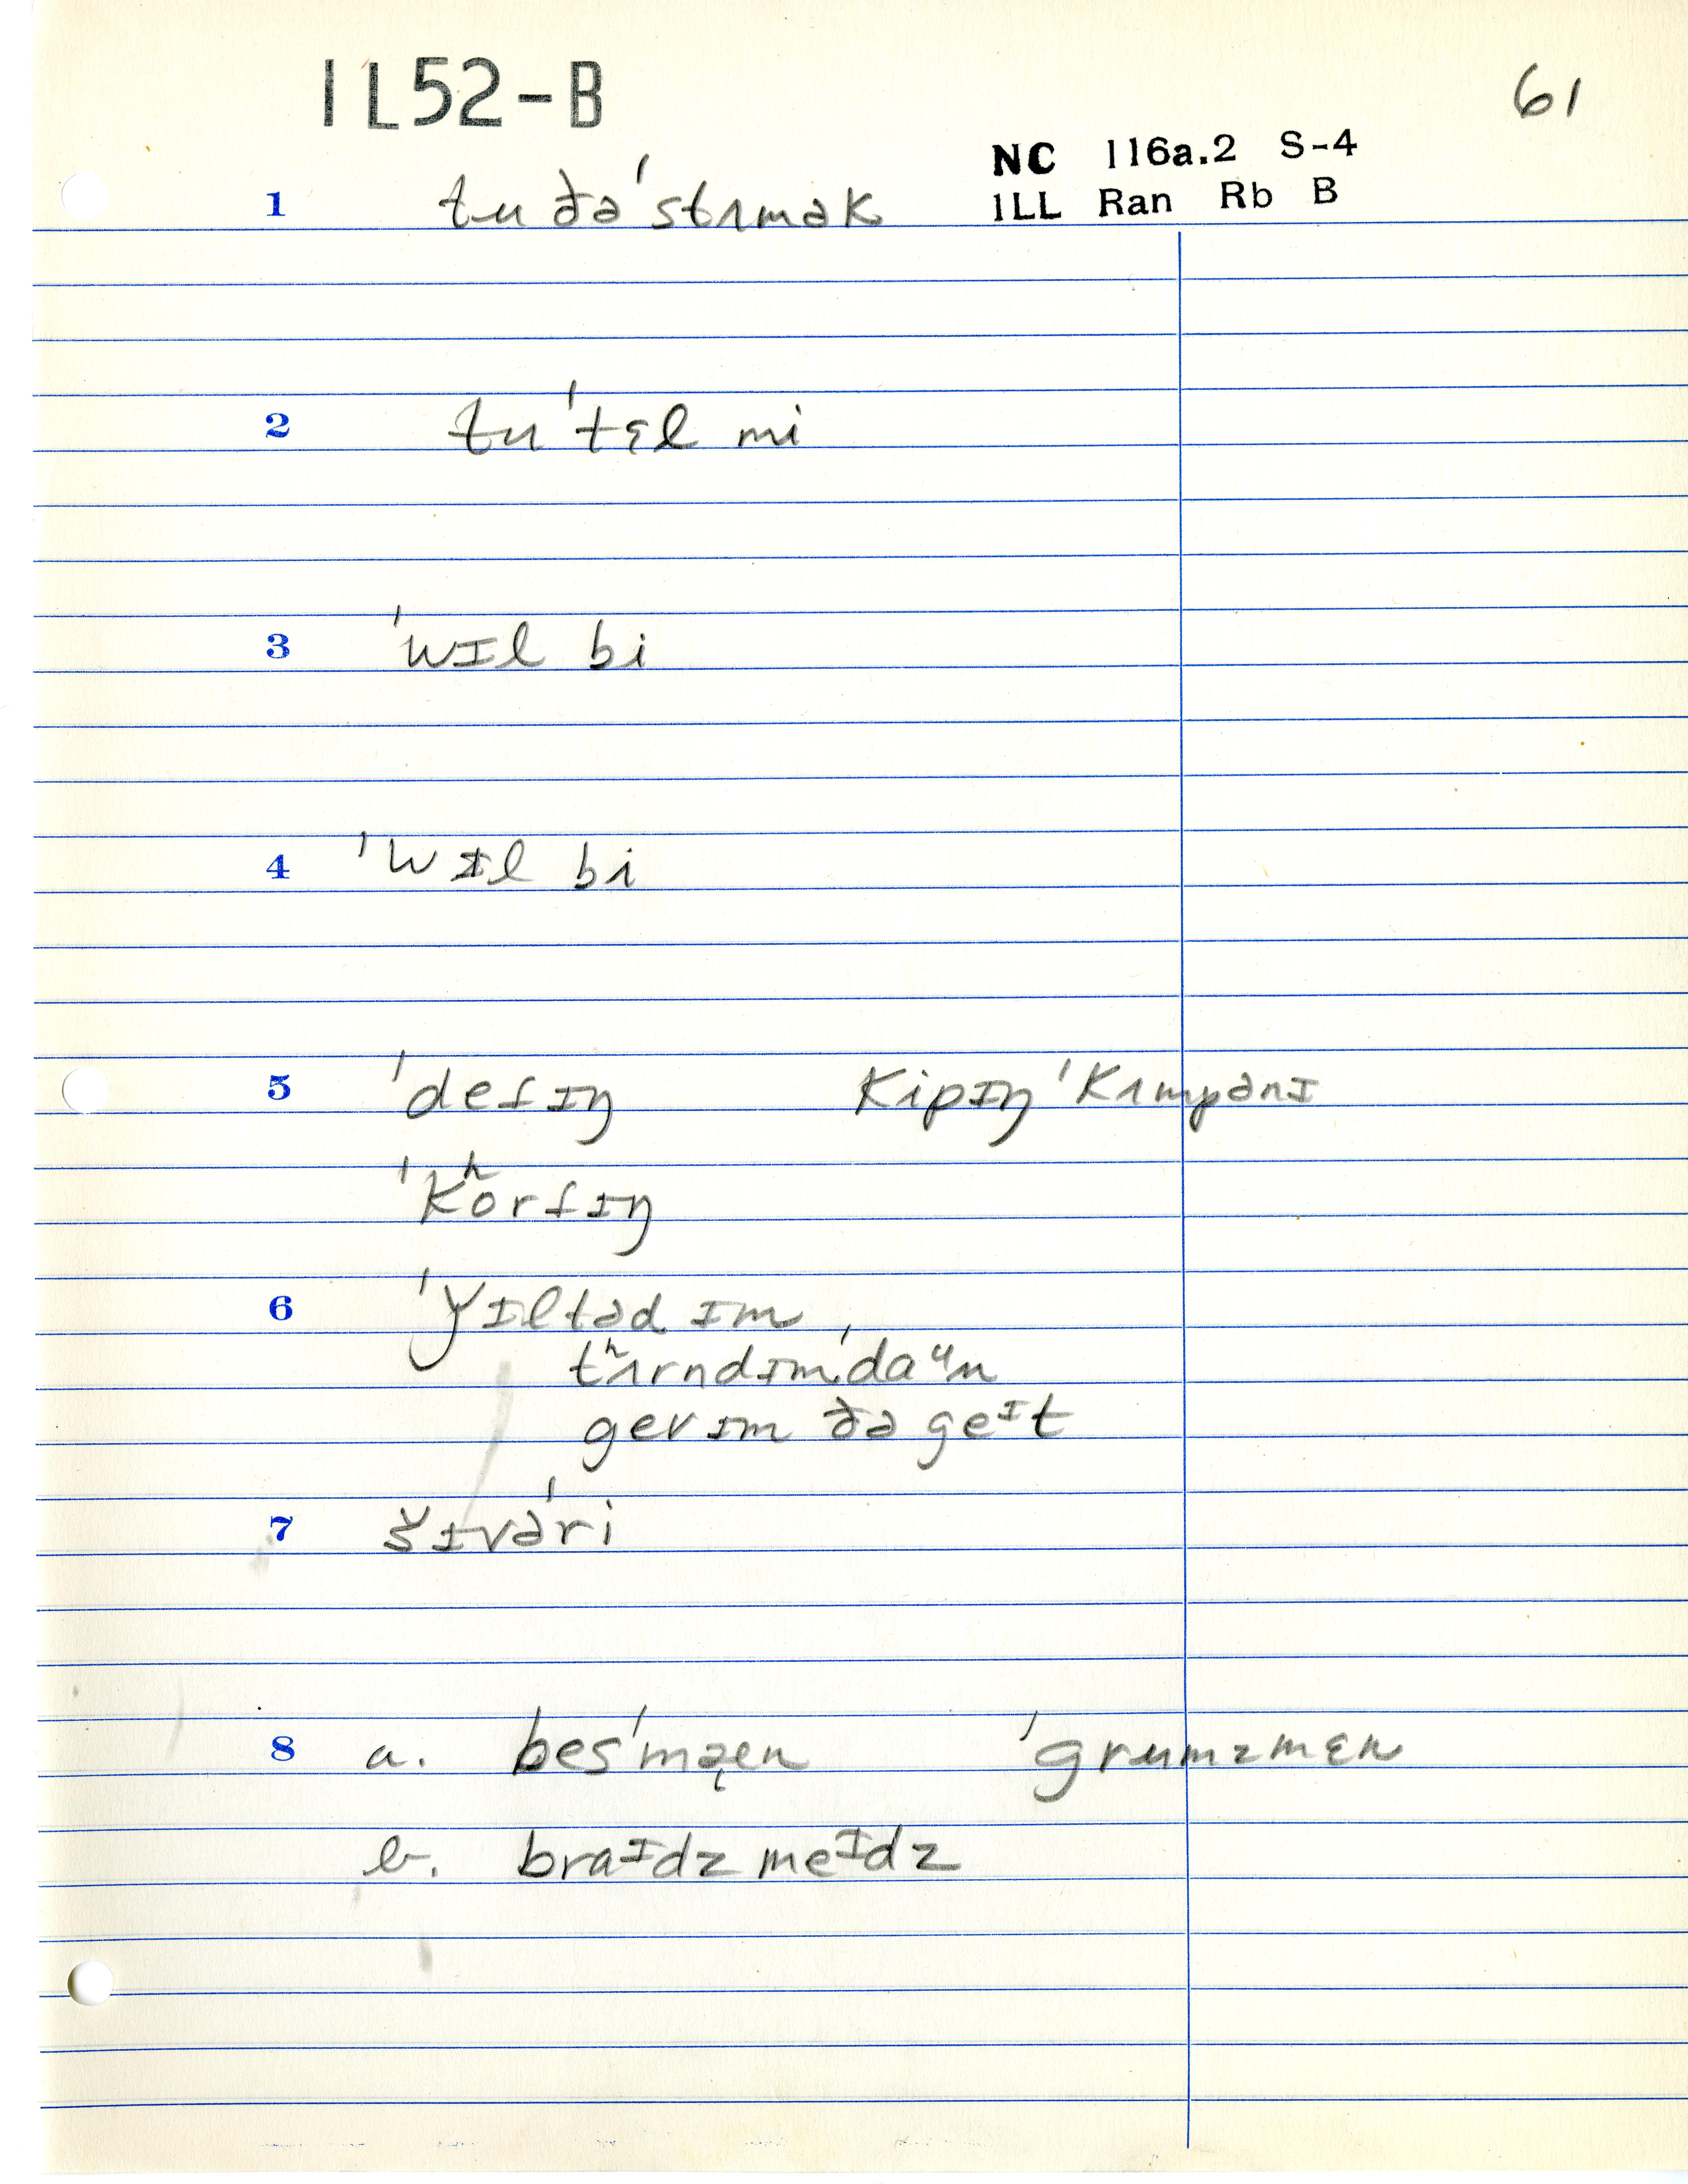 1L52-B
61
NC 116a.2 S-4
1LL Ran Rb B
1 tu ðə ˈstʌmək
2 tu ˈtɛl mi
3 ˈwɪl bi
4 ˈwɪl bi
5 ˈdetɪŋ kipɪŋ ˈkʌmpənɪ
ˈkʰortɪŋ
6 ˈǰɪltəd ɪm
tʰʌrnd ɪm ˈdaᵘn
gev ɪm ðə geᶦt
7 šɪvəˈri
8 a. besˈmæen ˈgrumzmɛn
b. braᶦdz meᶦdz